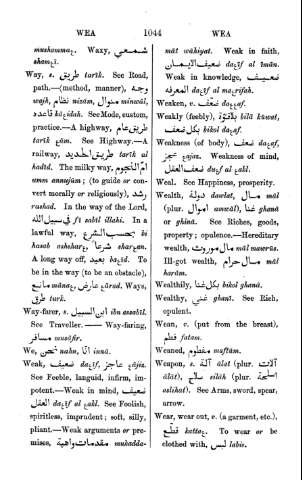 WEA 1044 WEA
mushamma?. Waxy, شمعي
sham?ī.
Way, s. طريق tarīk. See Road,
path.—(method, manner), وجه
wajh, نظام nizām, منوال minwāl,
قاعدة kā?idah. See Mode, custom,
practice.—A highway, طريق عام
tarīk ?ām. See Highway.—A
railway, طريق الحديد tarīk al
hadīd. The milky way, ام النجوم
umm annujūm; (to guide or con-
vert morally or religiously), رشد
rashad. In the way of the Lord,
في سبيل الله fī sabīl illahi. In a
lawful way, بحسب الشرع bi
hasab ashshar?, شرعًا shar?an.
A long way off, بعيد ba?īd. To
be in the way (to be an obstacle),
مانع māna?, عارض ?ārad. Ways,
طرق turk.
Way-farer, s. ابن السبيل ibn assabīl.
See Traveller. — Way-faring,
مسافر musāfir.
We, نحن nahn, انّا innā.
Weak, ضعيف da?īf, عاجز ?ājiz.
See Feeble, languid, infirm, im-
potent.—Weak in mind, ضعيف
العقل da?īf al ?akl. See Foolish,
spiritless, imprudent; soft, silly,
pliant.—Weak arguments or pre-
mises, مقدمات واهية mukadda-
māt wāhiyat. Weak in faith,
ضعيف الايمان da?īf al īmān.
Weak in knowledge, ضعيف
المعرفة da?īf al ma?rifah.
Weaken, v. ضعف da??af.
Weakly (feebly), بلا قوة bilā kūwat,
بكل ضعف bikol da?af.
Weakness (of body), ضعف da?af,
عجز ?ajiz. Weakness of mind,
ضعف العقل da?f al ?akl.
Weal. See Happiness, prosperity.
Wealth, دولة dawlat, مال māl
(plur. اموال amwāl), غنا ghanā
or ghinā. See Riches, goods,
property; opulence.—Hereditary
wealth, مال موروث māl mawrūs.
Ill-got wealth, مال حرام māl
harām.
Wealthily, بكل غنا bikol ghanā.
Wealthy, غني ghanī. See Rich,
opulent.
Wean, v. (put from the breast),
فطم fatam.
Weaned, مفطوم muftūm.
Weapon, s. آلة ālat (plur. آلات
ālāt), سلاح silāh (plur. اسلحة
aslihat). See Arms, sword, spear,
arrow.
Wear, wear out, v. (a garment, etc.),
قطع katta?. To wear or be
clothed with, لبس labis.